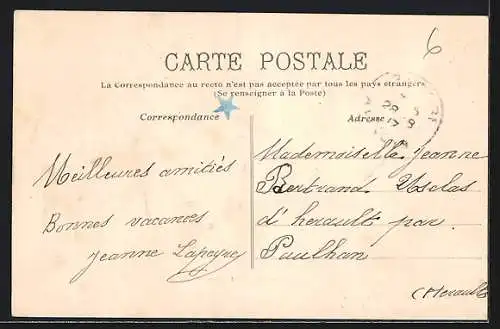 6
CARTE POSTALE
La Correspondance au recto n'est pas acceptée par tous les pays étrangers
(Se renseigner à la Poste)
Correspondance
Adresse
Meilleures amitiés
Bonnes vacances
Jeanne Lapeyre
Mademoiselle Jeanne
Bertrand Usclas
d'herault par
Paulhan
(Herault